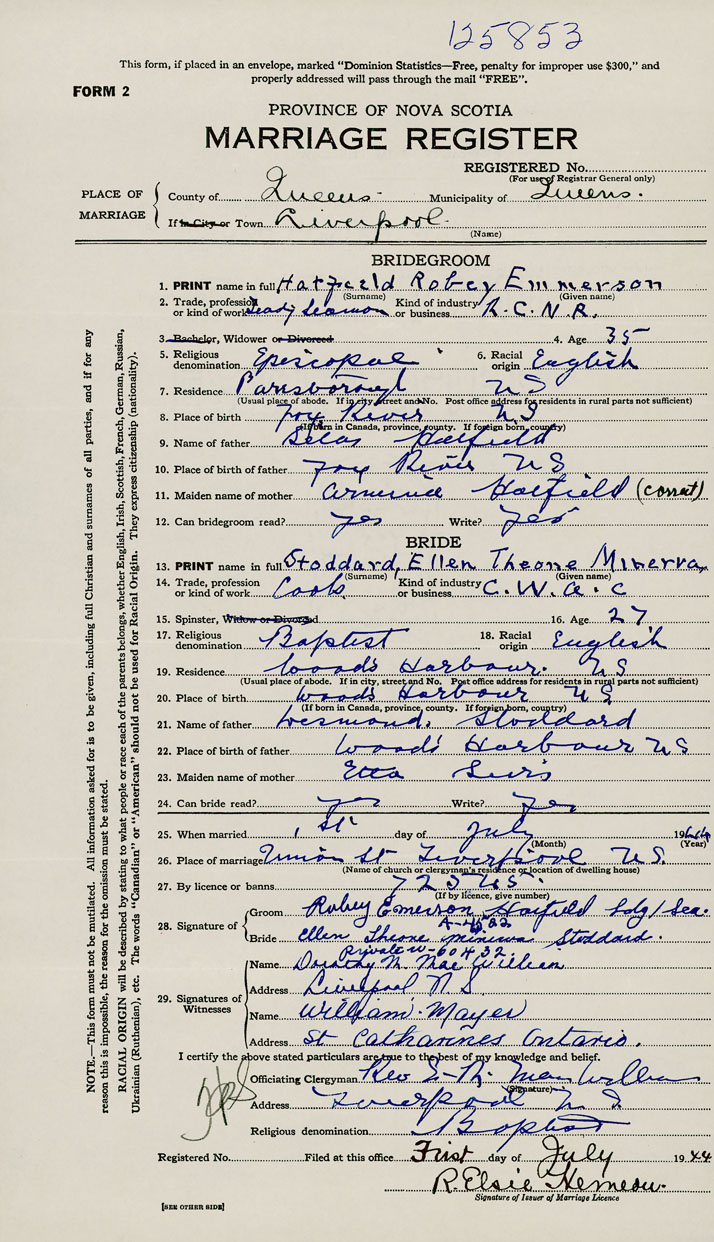 125853
This form, if placed in an envelope, marked "Dominion Statistics—Free, penalty for improper use $300," and
properly addressed will pass through the mail "FREE".
FORM 2
PROVINCE OF NOVA SCOTIA
MARRIAGE REGISTER
REGISTERED No.
(For use of Registrar General only)
PLACE OF MARRIAGE
County of Queens Municipality of Queens.
If in City or Town Liverpool
(Name)
BRIDEGROOM
1. PRINT name in full Hatfield Robey Emmerson
(Surname) (Given name)
2. Trade, profession or kind of work Leady Seaman Kind of industry or business R.C.N.R.
3. Bachelor, Widower or Divorced 4. Age 35
5. Religious denomination Episcopal 6. Racial origin English
7. Residence Parrsborough NS
(Usual place of abode. If in city, street and No. Post office address for residents in rural parts not sufficient)
8. Place of birth Fox River NS
(If born in Canada, province, county. If foreign born, country)
9. Name of father Silas Hatfield
10. Place of birth of father Fox River NS
11. Maiden name of mother Hatfield (correct)
12. Can bridegroom read? yes Write? yes
BRIDE
13. PRINT name in full Stoddard, Ellen Theone Minerva
(Surname) (Given name)
14. Trade, profession or kind of work Cook Kind of industry or business C.W.A.C
15. Spinster, Widow or Divorced 16. Age 27
17. Religious denomination Baptist 18. Racial origin English
19. Residence Woods Harbour. NS
(Usual place of abode. If in city, street and No. Post office address for residents in rural parts not sufficient)
20. Place of birth Woods Harbour NS
(If born in Canada, province, county. If foreign born, country)
21. Name of father Desmond. Stoddard
22. Place of birth of father Woods Harbour NS
23. Maiden name of mother Etta
24. Can bride read? yes Write? yes
25. When married 1st day of July 1944
(Month) (Year)
26. Place of marriage Union St Liverpool N.S.
(Name of church or clergyman's residence or location of dwelling house)
27. By licence or banns
(If by licence, give number)
28. Signature of
Groom Robey Emerson Hatfield Ldg/Sea.
A-4522
Bride Ellen Theone Minerva Stoddard.
Private W-60432
29. Signatures of Witnesses
Name Dorothy M. MacWilliam
Address Liverpool N.S.
Name William Mayer
Address St Catharines Ontario.
I certify the above stated particulars are true to the best of my knowledge and belief.
Officiating Clergyman Rev
(Signature)
Address Liverpool N S
Religious denomination Baptist
Registered No. Filed at this office First day of July 1944
R. Elsie Hemeon.
Signature of Issuer of Marriage Licence
[SEE OTHER SIDE]
NOTE.—This form must not be mutilated. All information asked for is to be given, including full Christian and surnames of all parties, and if for any
reason this is impossible, the reason for the omission must be stated.
RACIAL ORIGIN will be described by stating to what people or race each of the parents belongs, whether English, Irish, Scottish, French, German, Russian,
Ukrainian (Ruthenian), etc. The words "Canadian" or "American" should not be used for Racial Origin. They express citizenship (nationality).